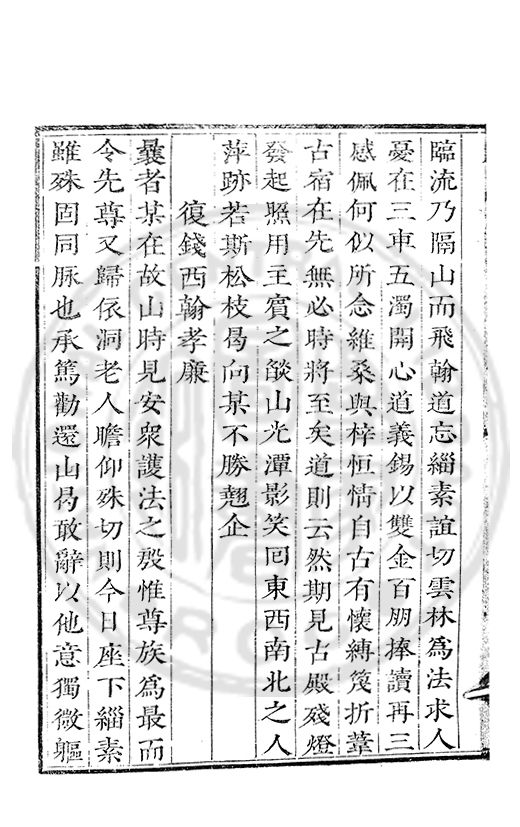 臨流乃隔山而飛翰道忘緇素誼切雲林為法求人
憂在三車五濁開心道義錫以雙金百朋捧讀再三
感佩何似所念維桑與梓恒情自古有懷縛篾折葦
古宿在先無必時將至矣道則云然期見古殿殘燈
發起照用主賓之燄山光潭影笑回東西南北之人
萍跡若斯松枝曷向某不勝翹企
復錢西翰孝廉
曩者某在故山時見安衆護法之殷惟尊族為最而
令先尊又歸依洞老人瞻仰殊切則今日座下緇素
雖殊固同脉也承篤勸還山曷敢辭以他意獨微軀